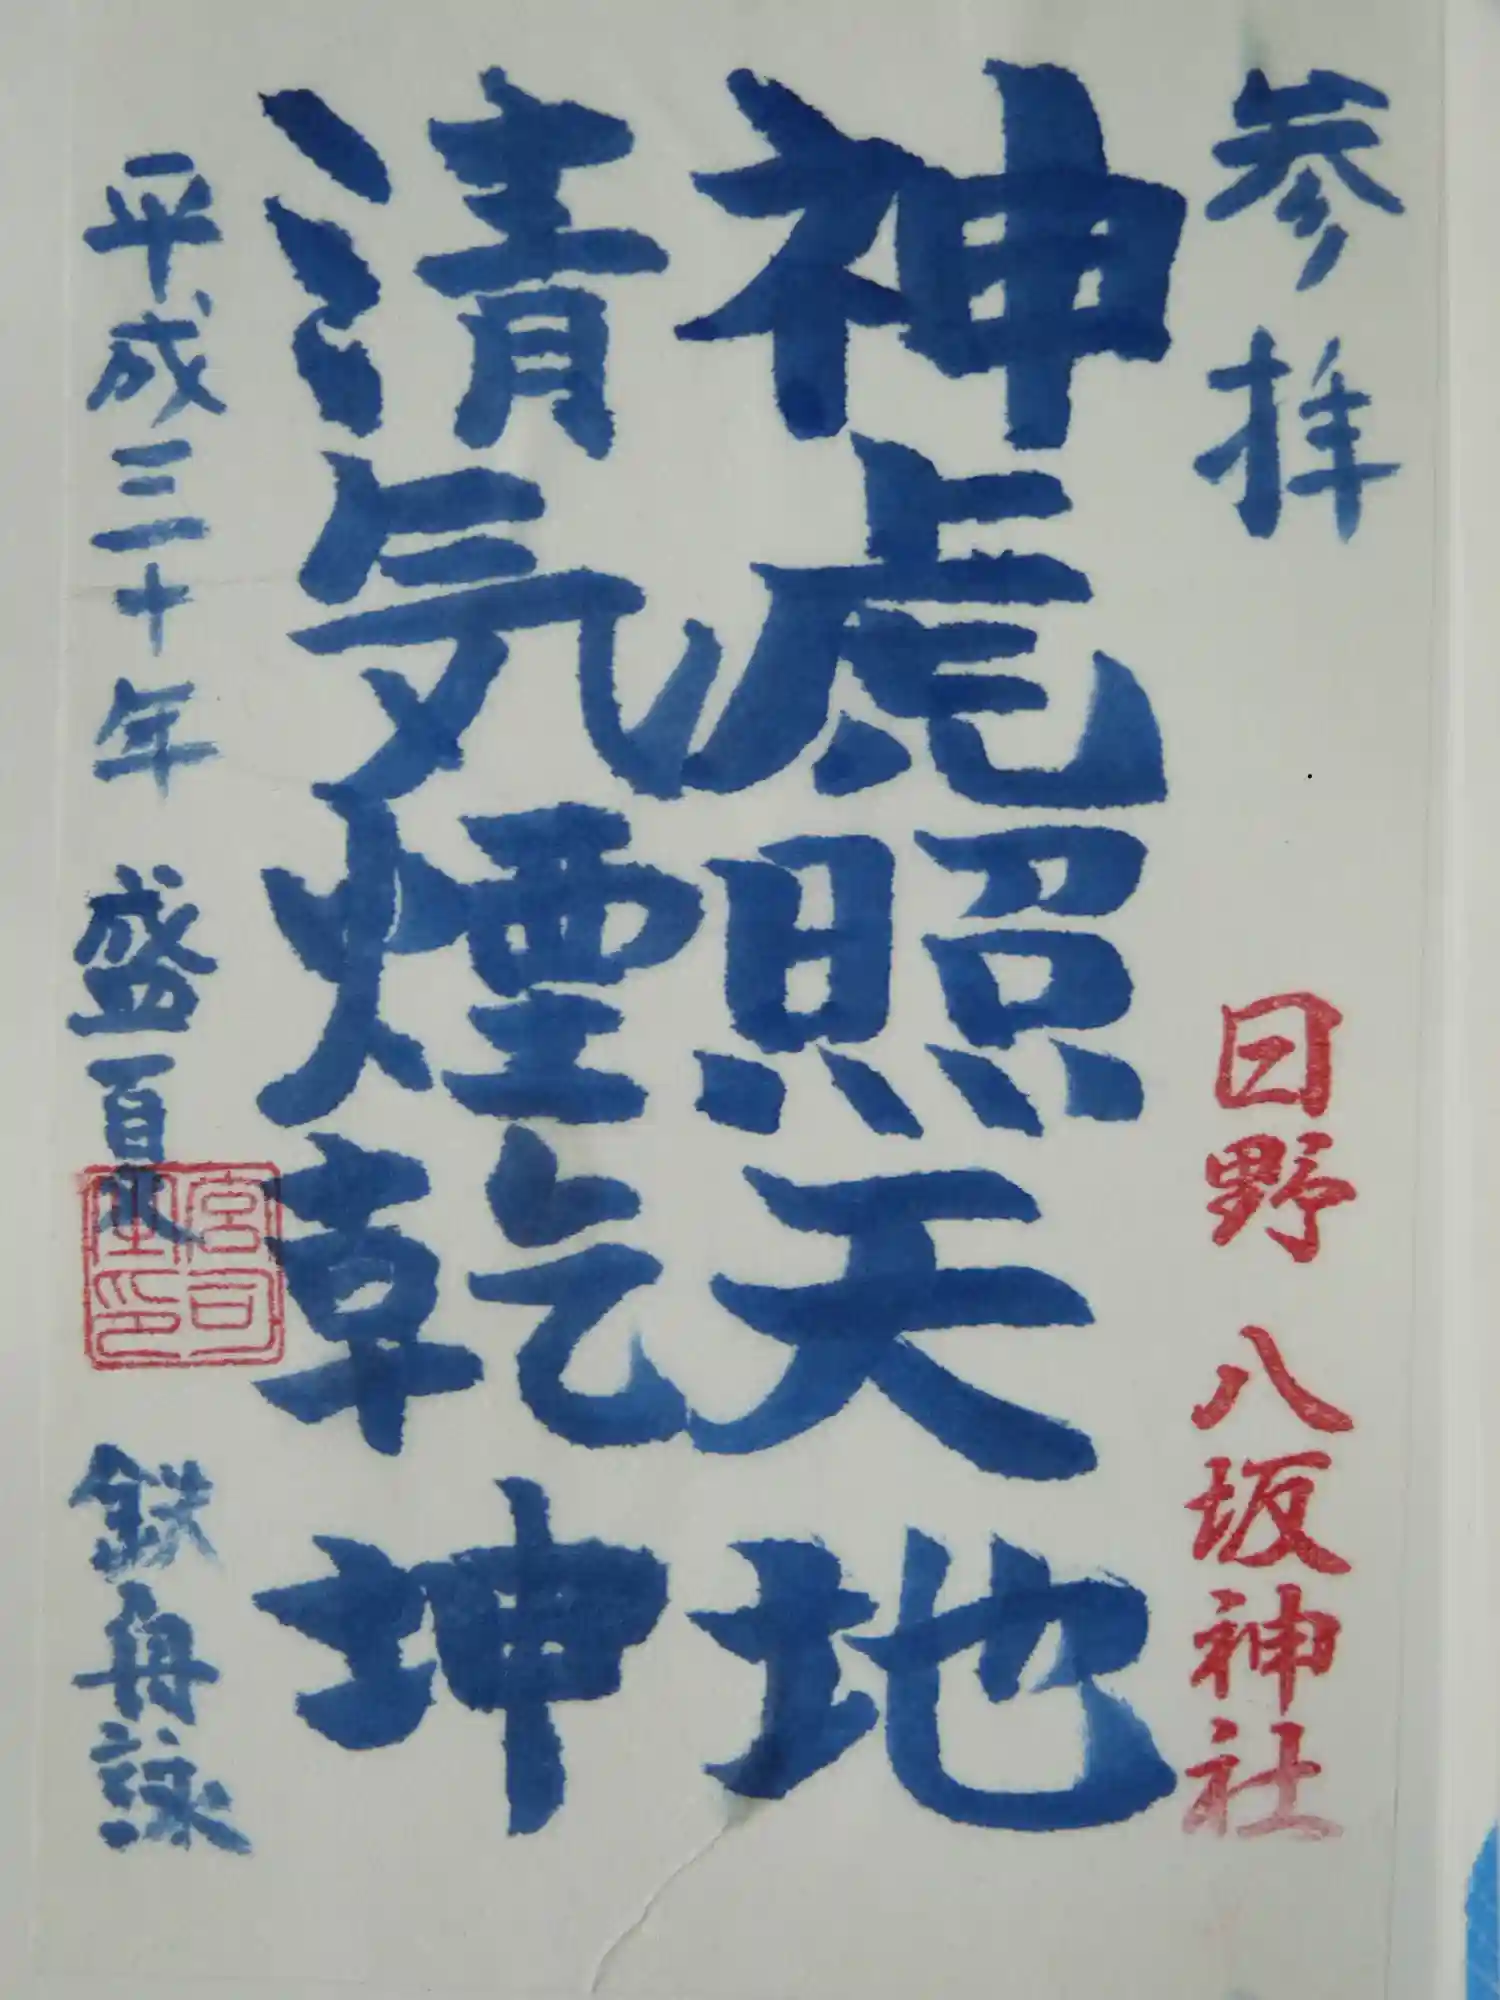 参拝
日野 八坂神社
神虎照天地
清気煙乾坤
平成三十年 盛夏 鉄舟詠
宮司之印